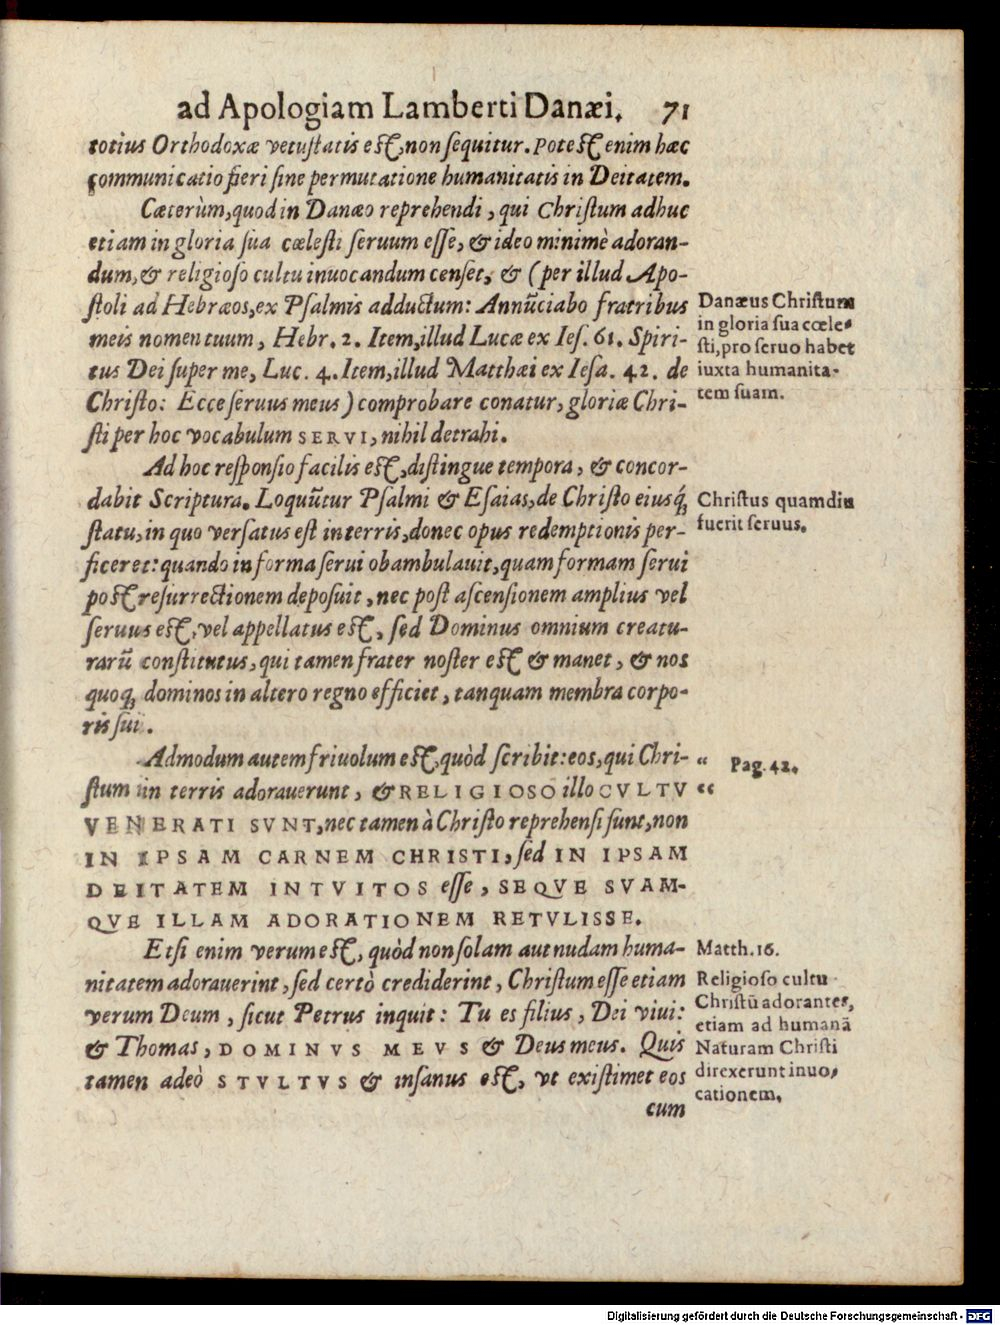 ad Apologiam Lamberti Danæi. 71
totius Orthodoxæ vetuſtatis eſt, non ſequitur. Poteſt enim hæc
communicatio fieri ſine permutatione humanitatis in Deitatem.
Cæterùm, quod in Danæo reprehendi, qui Chriſtum adhuc
etiam in gloria ſua cœleſti ſeruum eſſe, & ideo minimè adoran-
dum, & religioſo cultu inuocandum cenſet, & (per illud Apo-
ſtoli ad Hebræos, ex Pſalmis adductum: Annũciabo fratribus
meis nomen tuum, Hebr. 2. Item, illud Lucæ ex Ieſ. 61. Spiri-
tus Dei ſuper me, Luc. 4. Item, illud Matthæi ex Ieſa. 42. de
Chriſto: Ecce ſeruus meus) comprobare conatur, gloriæ Chri-
ſti per hoc vocabulum SERVI, nihil detrahi.
Danæus Chriſtum
in gloria ſua cœle-
ſti, pro ſeruo habet
iuxta humanita-
tem ſuam.
Ad hoc reſponſio facilis eſt, diſtingue tempora, & concor-
dabit Scriptura. Loquũtur Pſalmi & Eſaias, de Chriſto eiusq́;
ſtatu, in quo verſatus eſt in terris, donec opus redemptionis per-
ficeret: quando in forma ſerui obambulauit, quam formam ſerui
poſt reſurrectionem depoſuit, nec poſt aſcenſionem amplius vel
ſeruus eſt, vel appellatus eſt, ſed Dominus omnium creatu-
rarũ conſtitutus, qui tamen frater noſter eſt & manet, & nos
quoq; dominos in altero regno efficiet, tanquam membra corpo-
ris ſui.
Chriſtus quamdiu
fuerit ſeruus.
Admodum autem friuolum eſt, quòd ſcribit: eos, qui Chri- “
ſtum in terris adorauerunt, & RELIGIOSO illo CVLTV “
VENERATI SVNT, nec tamen à Chriſto reprehenſi ſunt, non
IN IPSAM CARNEM CHRISTI, ſed IN IPSAM
DEITATEM INTVITOS eſſe, SEQVE SVAM-
QVE ILLAM ADORATIONEM RETVLISSE.
Pag. 42.
Etſi enim verum eſt, quòd non ſolam aut nudam huma-
nitatem adorauerint, ſed certò crediderint, Chriſtum eſſe etiam
verum Deum, ſicut Petrus inquit: Tu es filius, Dei viui:
& Thomas, DOMINVS MEVS & Deus meus. Quis
tamen adeò STVLTVS & inſanus eſt, vt exiſtimet eos
cum
Matth. 16.
Religioſo cultu
Chriſtũ adorantes,
etiam ad humanã
Naturam Chriſti
direxerunt inuo-
cationem.
Digitalisierung gefördert durch die Deutsche Forschungsgemeinschaft - DFG